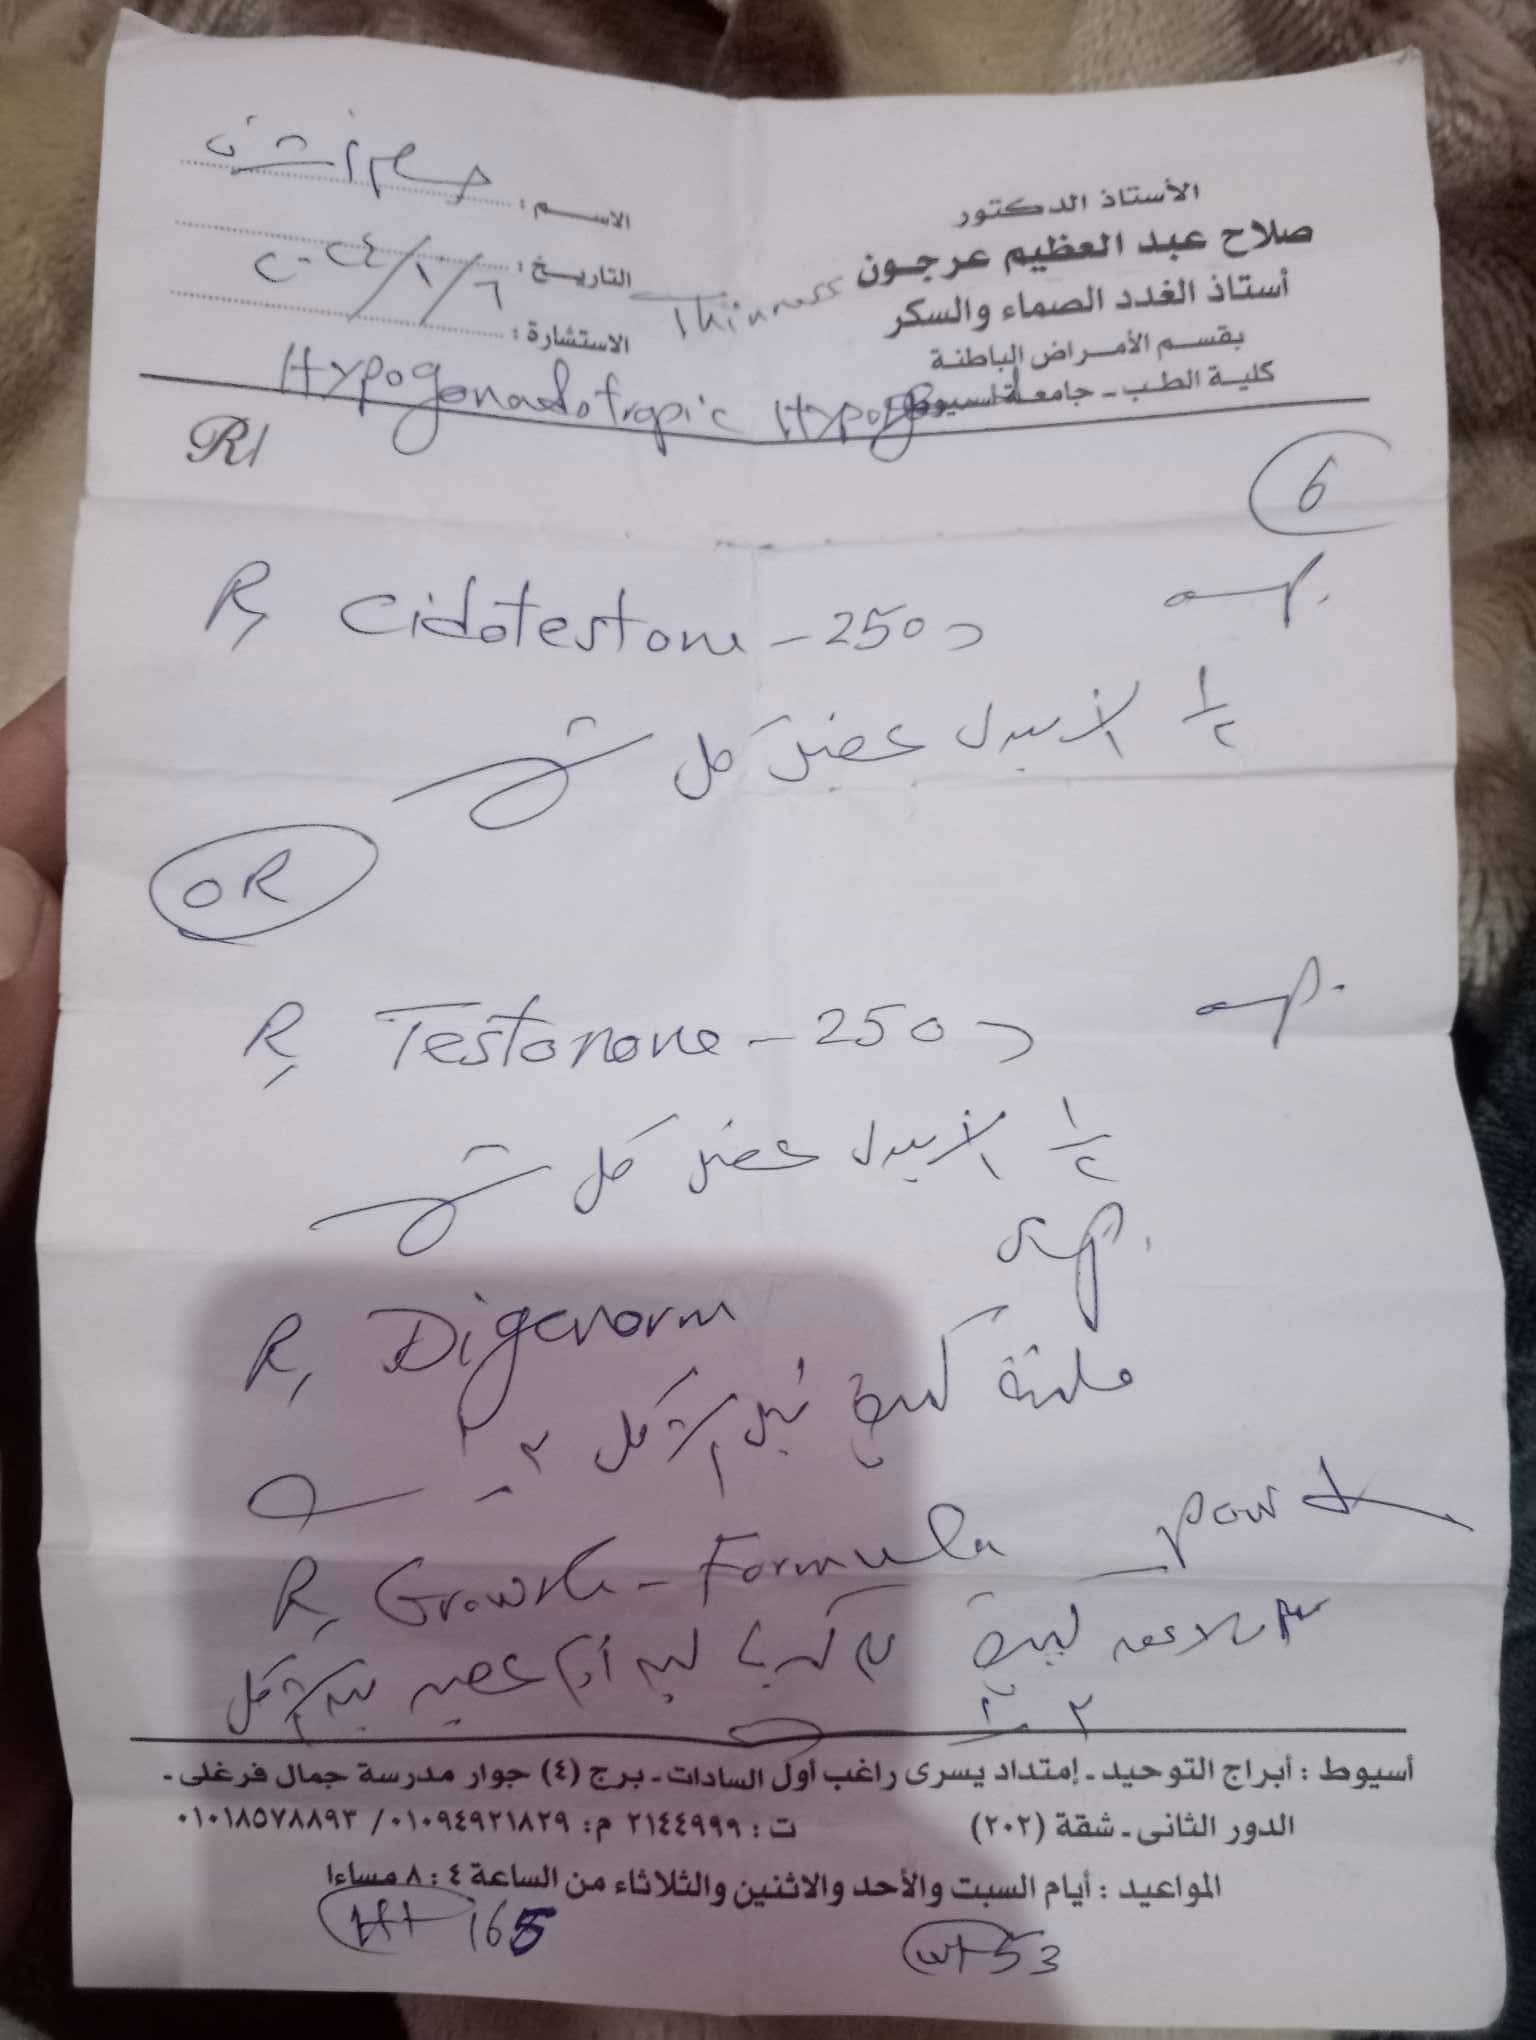 الأستاذ الدكتور
صلاح عبد العظيم عرجون
أستاذ الغدد الصماء والسكر
بقسم الأمراض الباطنة
كلية الطب - جامعة أسيوط
الاسم :
التاريخ : ٦/١٠/٢٠٢٤
الاستشارة :
Thinness
Hypogonadotropic Hypog
R/
6
R, Cidotestone - 250 amp.
١/٢ الأمبول عضل كل شهر
OR
R, Testonone - 250 amp.
١/٢ الأمبول عضل كل شهر
R, Digenorm syp.
ملعقة كبيرة قبل الأكل
R, Growth - Formula powd
أسيوط : أبراج التوحيد - إمتداد يسرى راغب أول السادات - برج (٤) جوار مدرسة جمال فرغلى -
الدور الثانى - شقة (٢٠٢) ت : ٢١٤٤٩٩٩ م : ٠١٠٩٤٩٢١٨٢٩ / ٠١٠١٨٥٧٨٨٩٣
المواعيد : أيام السبت والأحد والاثنين والثلاثاء من الساعة ٤ : ٨ مساءا
Ht 165
wt 53